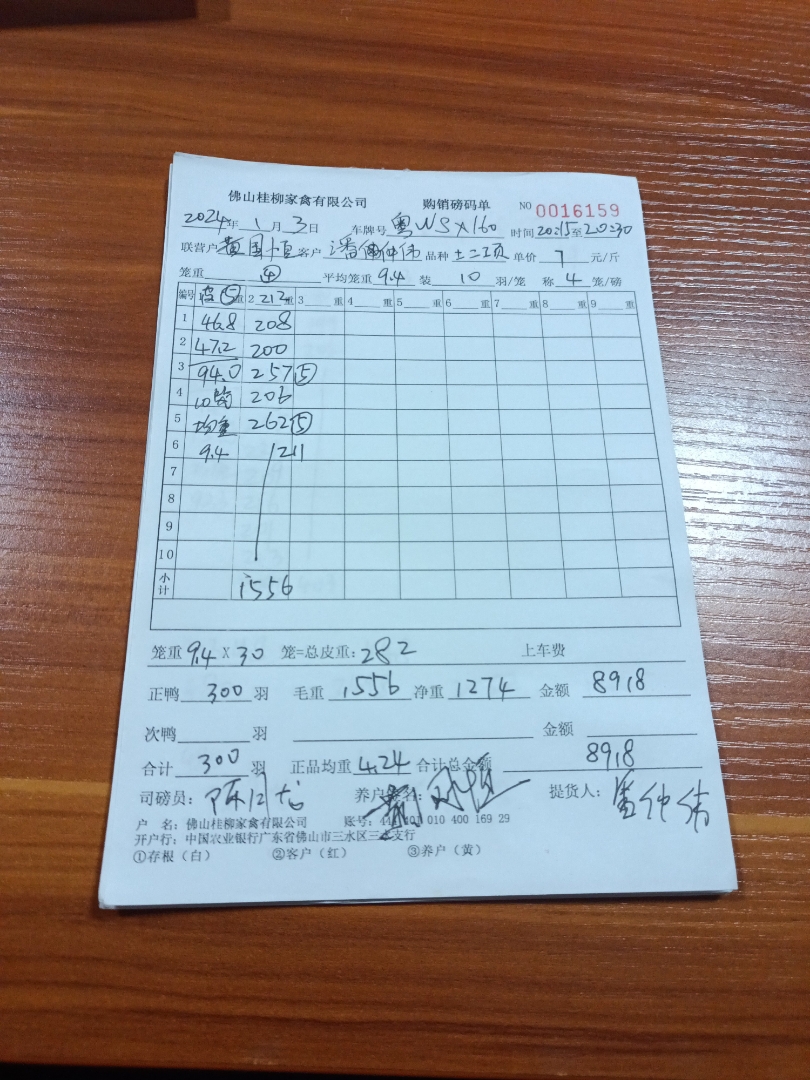 佛山桂柳家禽有限公司 购销磅码单 NO 0016159
2024年 1 月 3 日 车牌号 粤WSX160 时间 20:15 至 20:30
联营户 黄国恒 客户 潘仲伟 品种 土二项 单价 7 元/斤
笼重 ④ 平均笼重 9.4 装 10 羽/笼 称 4 笼/磅
编号 皮⑤重 2 212 重 3 重 4 重 5 重 6 重 7 重 8 重 9 重
1 46.8 208
2 47.2 200
3 94.0 257⑤
4 10笼 206
5 均重 262⑤
6 9.4 211
7
8
9
10
小计 1556
笼重 9.4 X 30 笼=总皮重: 282 上车费
正鸭 300 羽 毛重 1556 净重 1274 金额 8918
次鸭 羽 金额
合计 300 羽 正品均重 4.24 合计总金额 8918
司磅员: 养户签名: 提货人: 潘仲伟
户 名: 佛山桂柳家禽有限公司 账号: 010 400 169 29
开户行: 中国农业银行广东省佛山市三水区三水支行
①存根(白) ②客户(红) ③养户(黄)